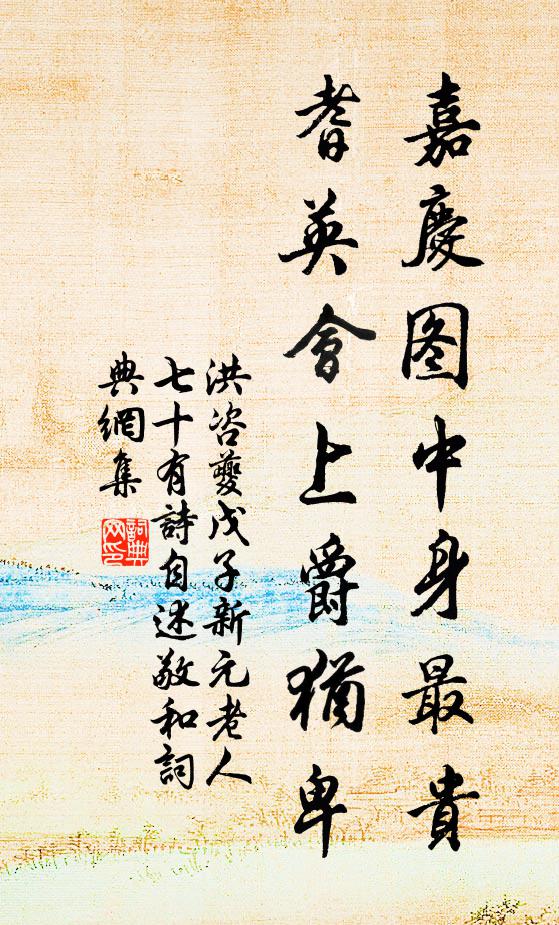 嘉慶图中身最貴
耆英會上爵猶卑
洪咨夔戊子新元老人
七十有詩自述敬和詞
典網集
詞典
网印